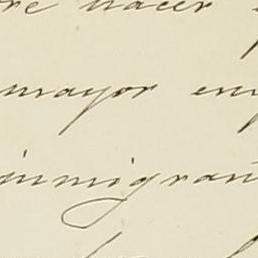 re hacer
mayor em
inmigran